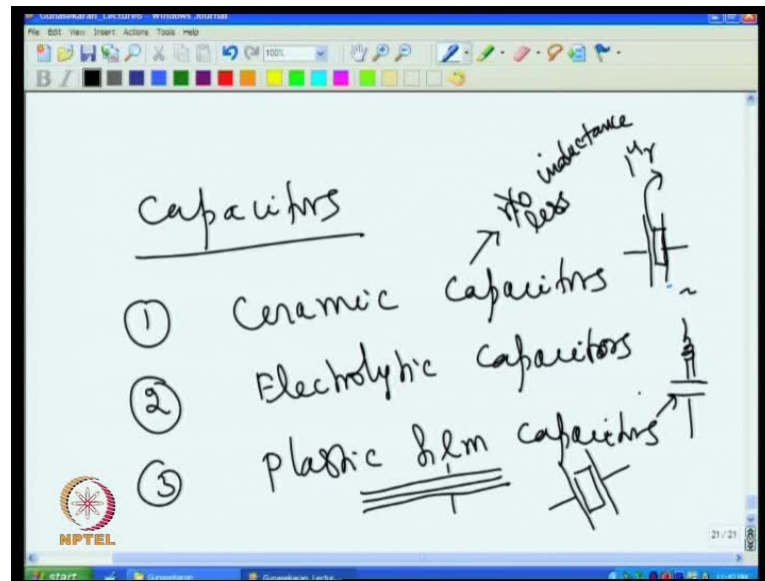 Gunasekaran_Lecture6 - Windows Journal
File Edit View Insert Actions Tools Help
100%
B I
Capacitors
inductance
less
① Ceramic Capacitors
② Electrolytic Capacitors
③ Plastic film Capacitors
NPTEL
21 / 21
start
Gunasekaran
Gunasekaran_Lectu...